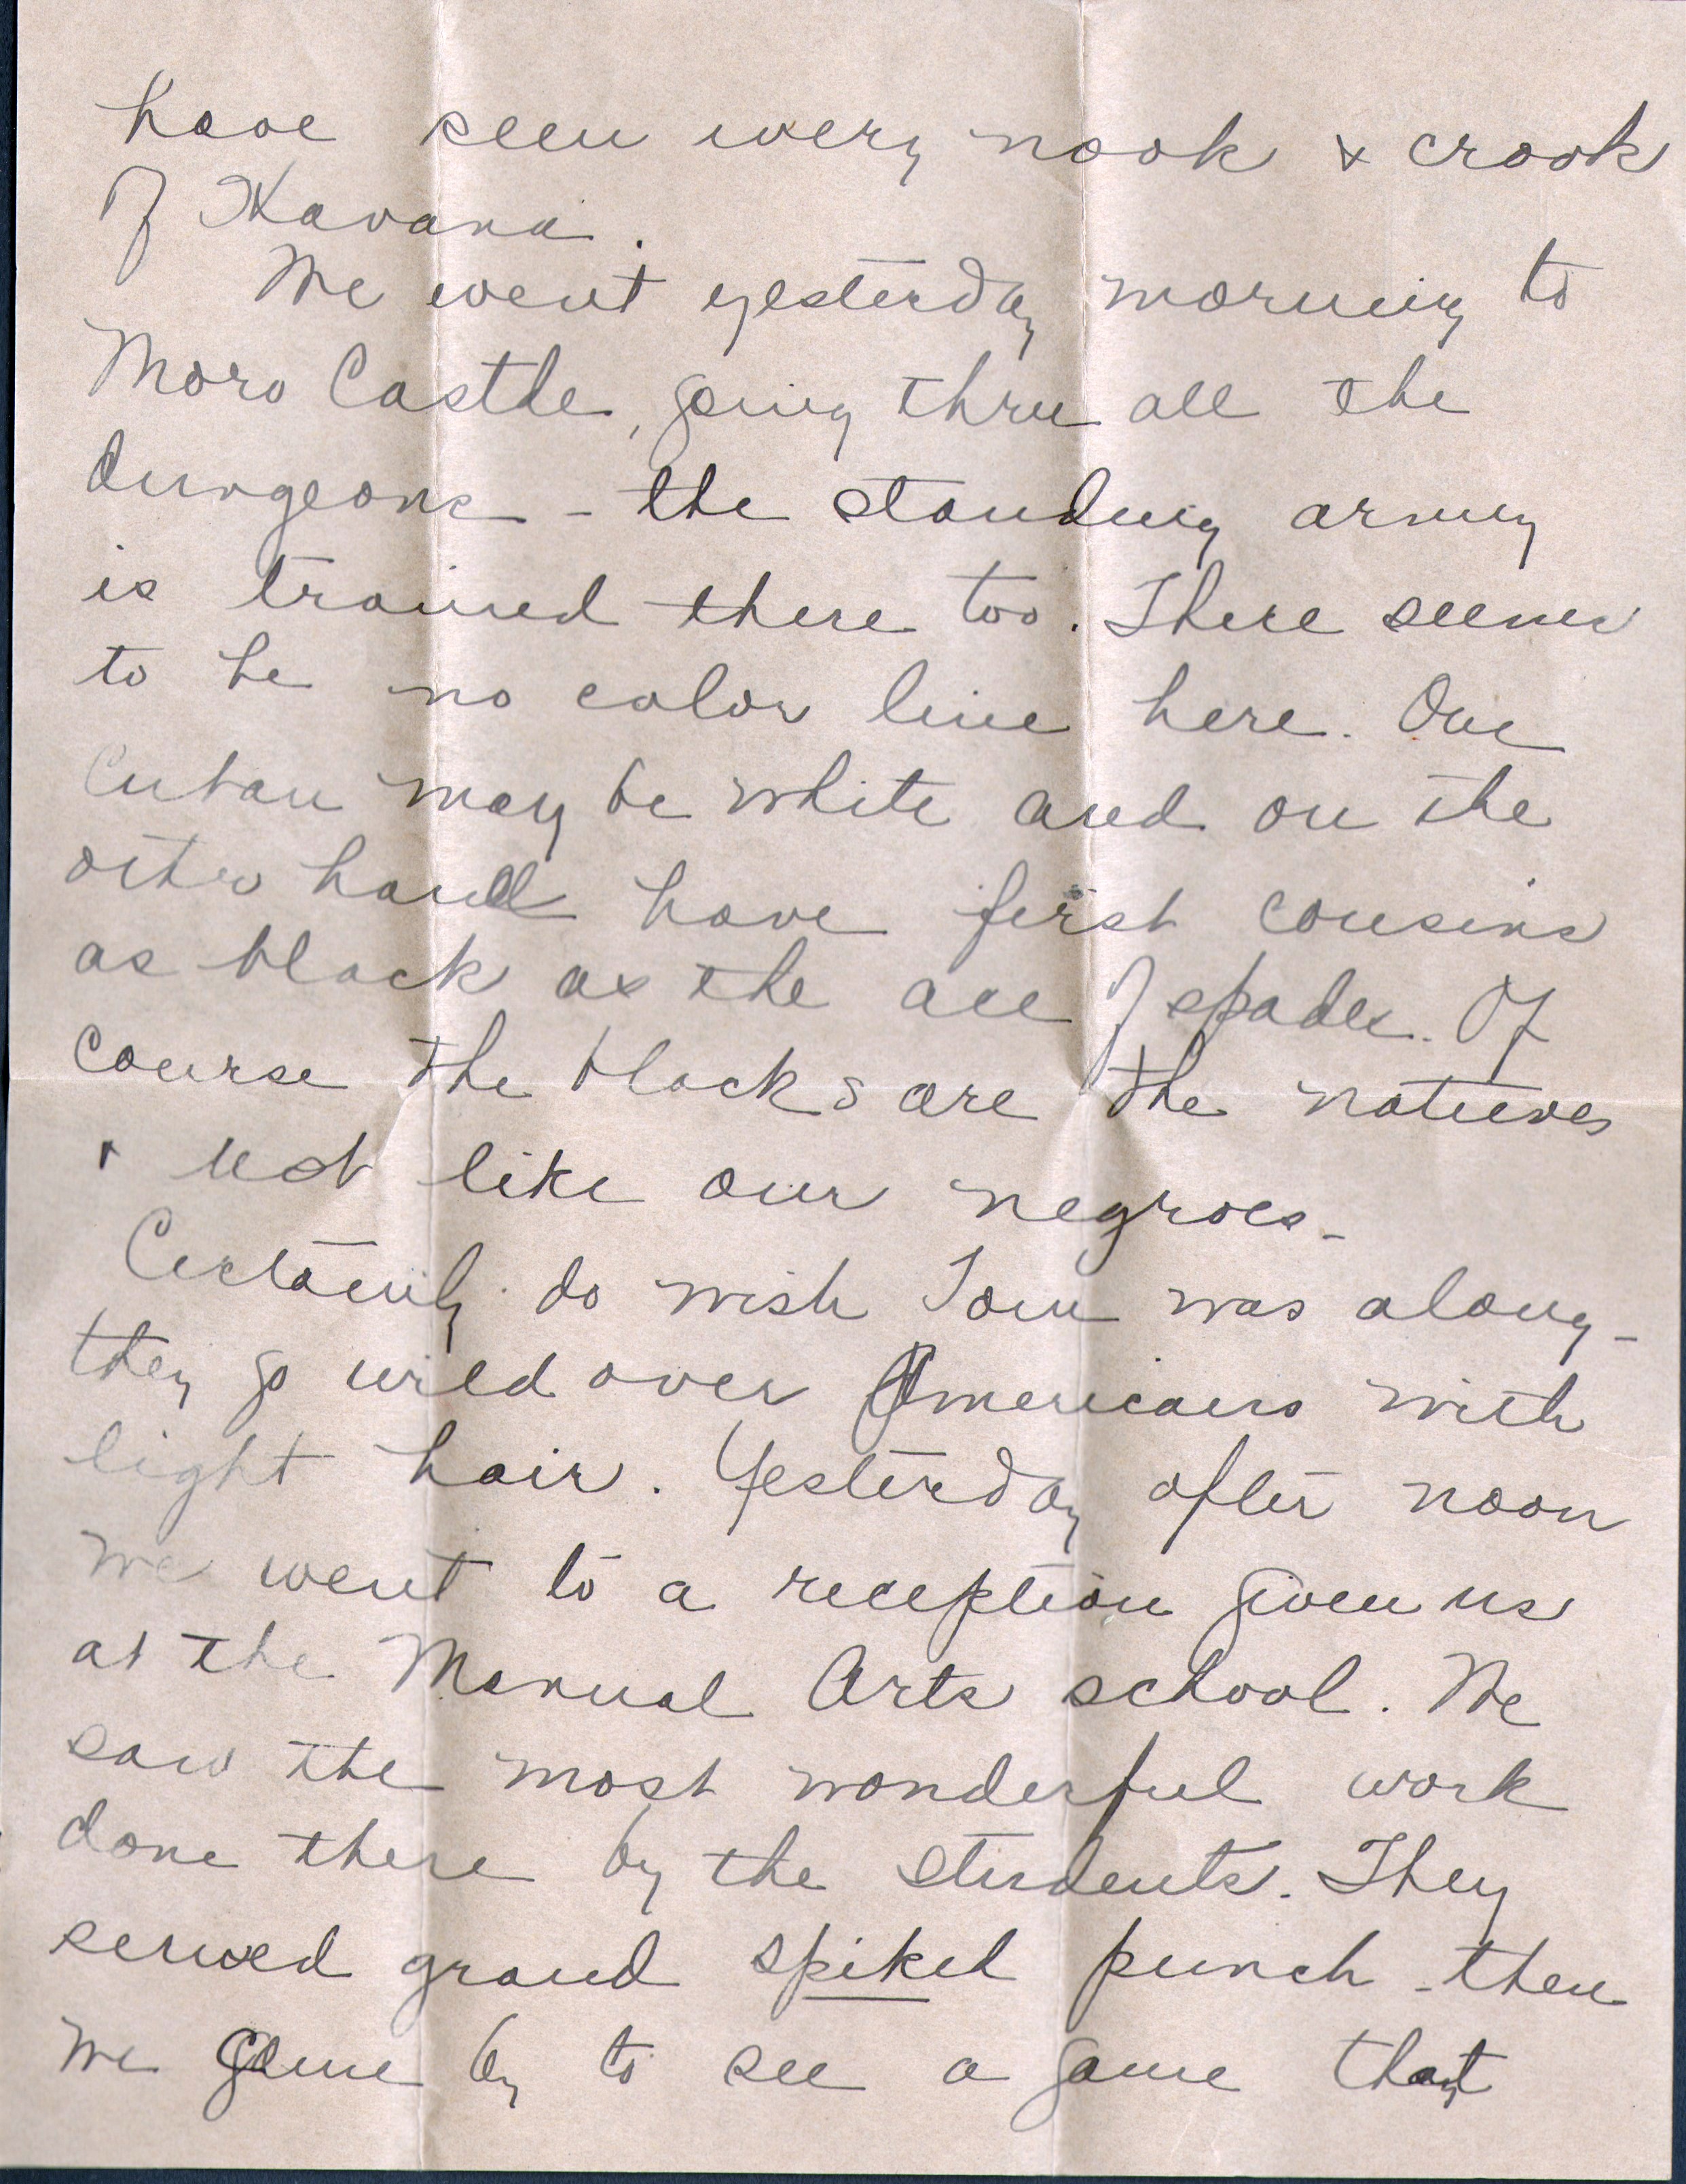 have seen every nook & crook
of Havana.
We went yesterday morning to
Moro Castle, going thru all the
dungeons - the standing army
is trained there too. There seems
to be no color line here. One
Cuban may be white and on the
other hand have first cousins
as black as the ace of spades. Of
course the blacks are the natives
& not like our negroes -
Certainly do wish Tom was along -
they go wild over Americans with
light hair. Yesterday after noon
we went to a reception given us
at the Manual Arts school. We
saw the most wonderful work
done there by the students. They
served grand spiked punch - then
we came by to see a game that